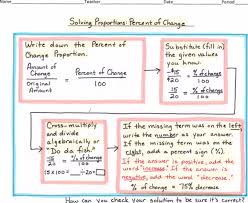 Name Teacher Date Period
Solving Proportions: Percent of Change
Write down the Percent of
Change Proportion.
Amount of
Change
Original
Amount
= Percent of Change
100
Substitute (fill in)
the given values
you know.
-15 = % of change
20 100
-15 = % of change
20 100
Cross-multiply
and divide
algebraically or
"Do da fish."
-15 = % of change
20 100
15 x 100 = ÷ 20 =
If the missing term was on the left,
write the number as your answer.
If the missing term was on the
right, add a percent sign (%).
If the answer is positive, add the
word "increase". If the answer is
negative, add the word "decrease".
% of change = 75% decrease
How can you check your solution to be sure it's correct?